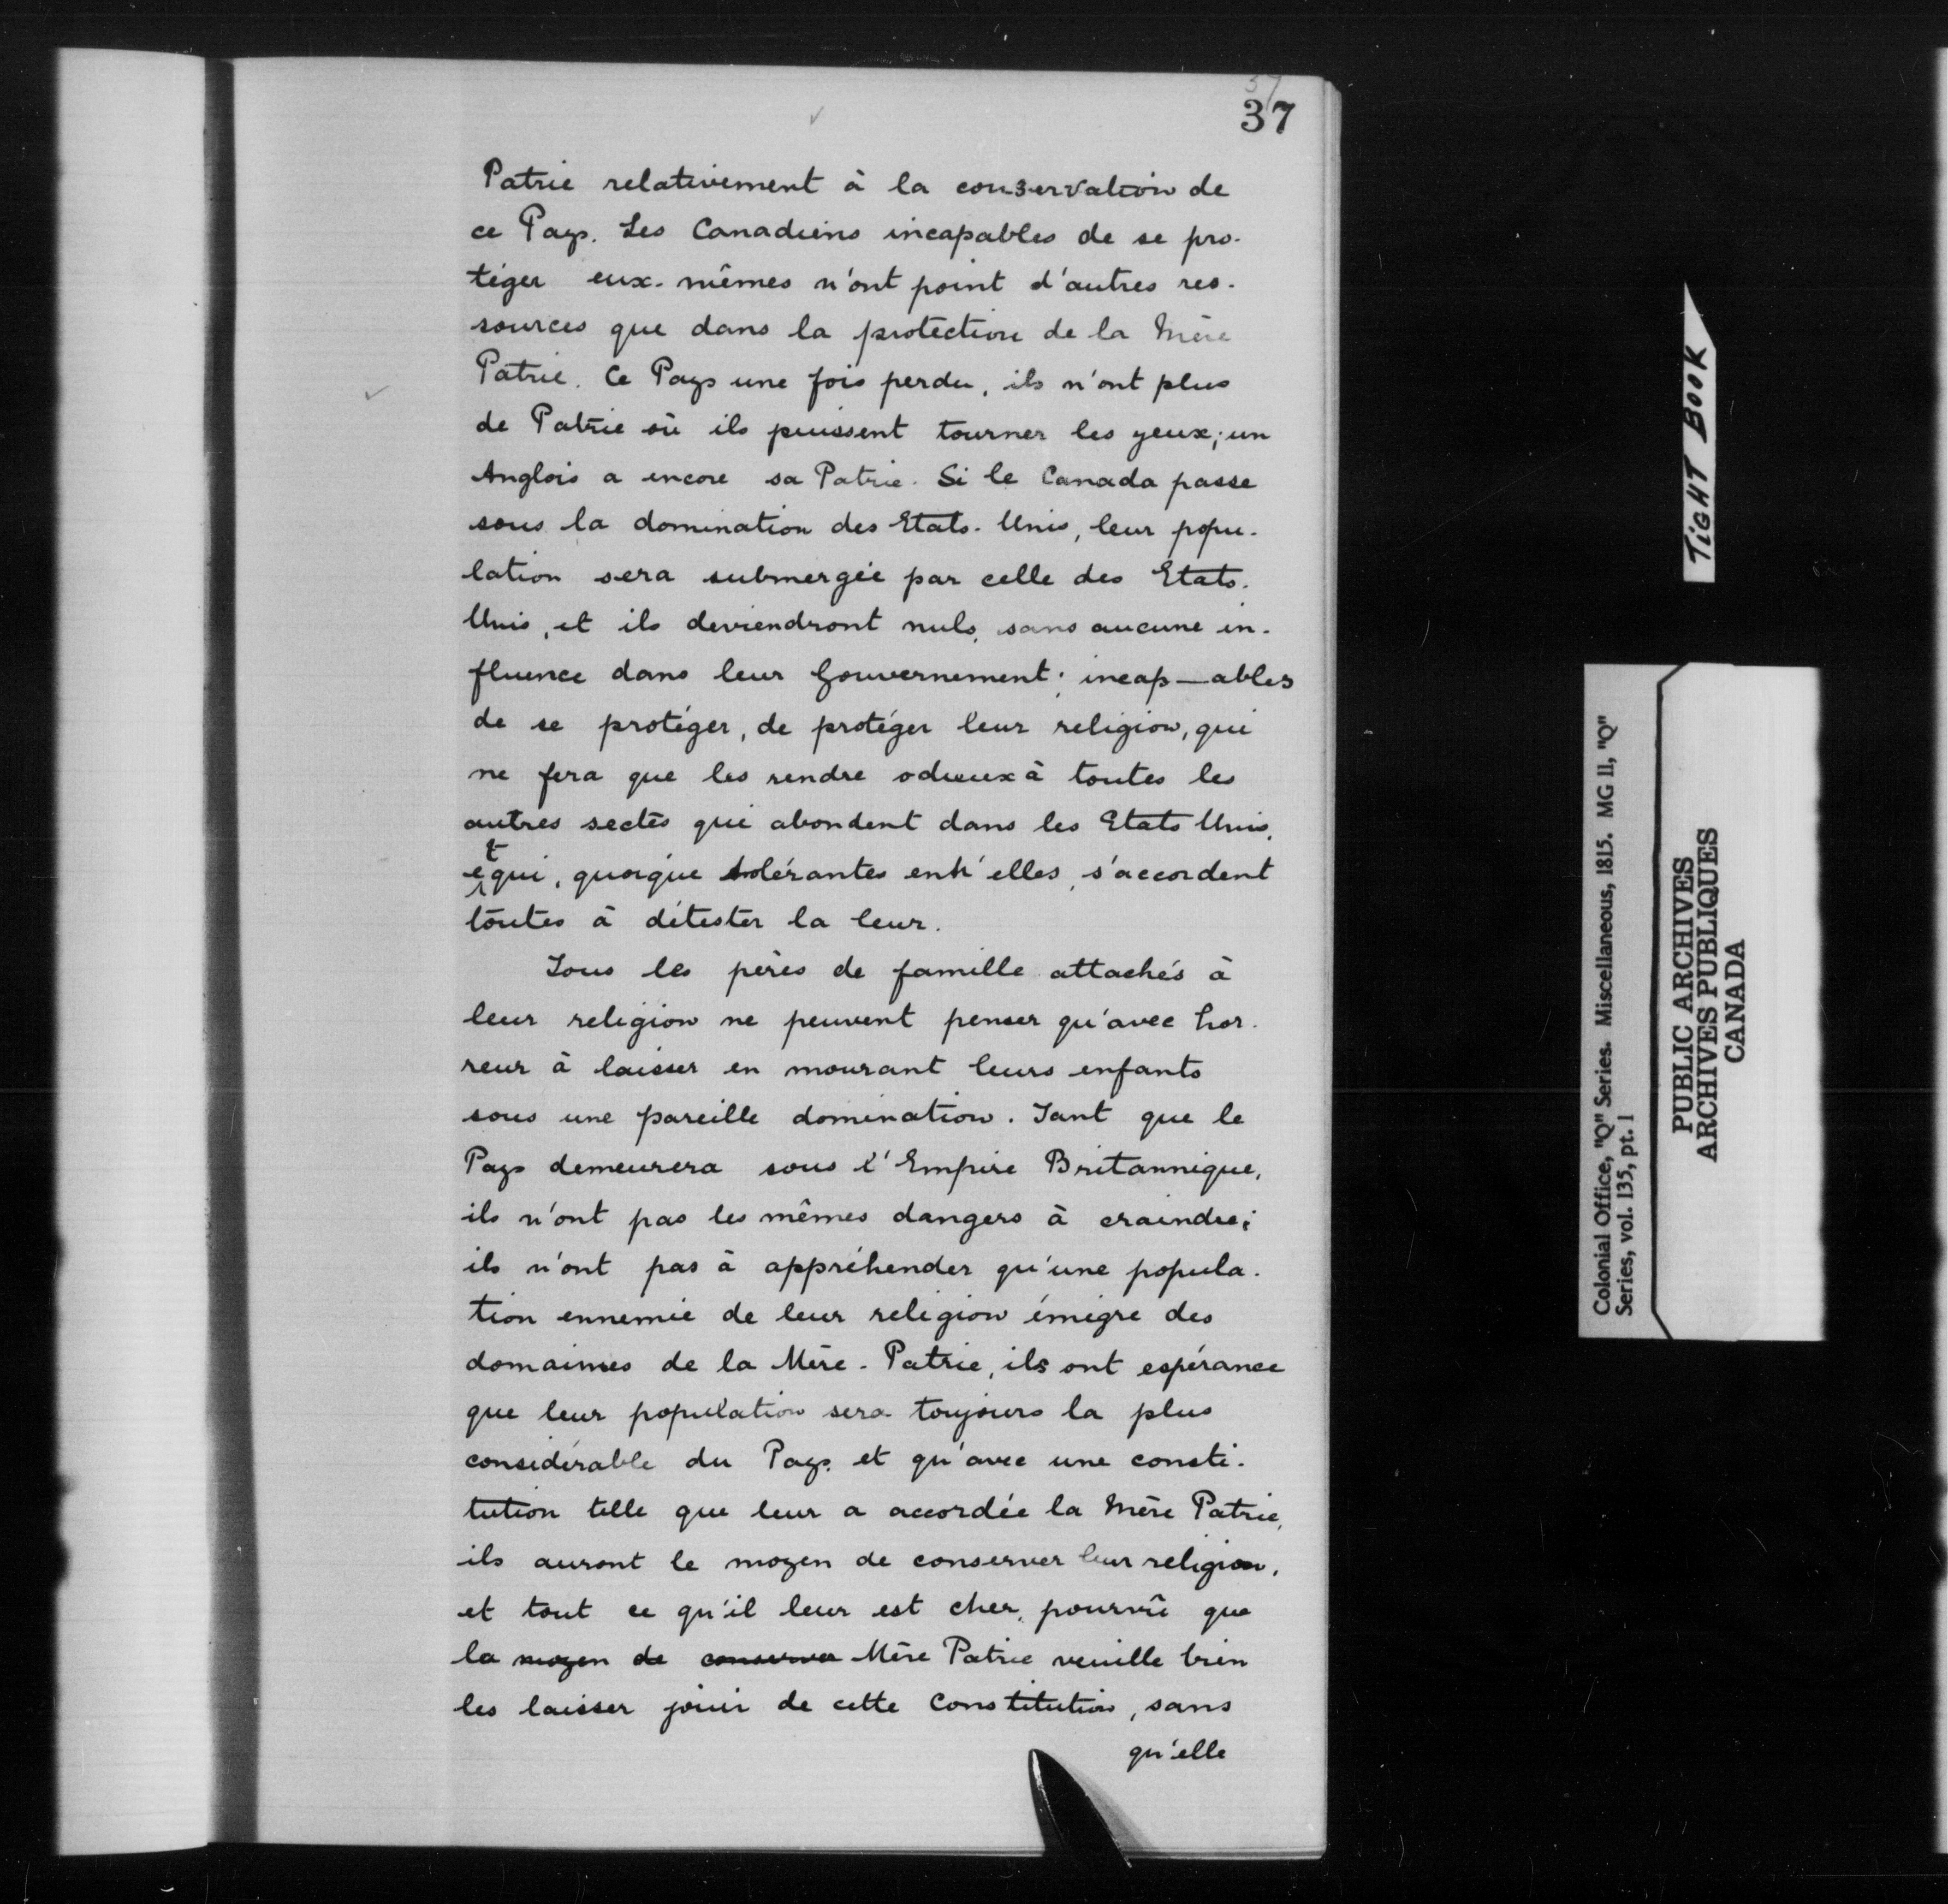 37
37
Patrie relativement à la conservation de
ce Pays. Les Canadiens incapables de se pro-
téger eux-mêmes n'ont point d'autres res-
sources que dans la protection de la Mère
Patrie. Ce Pays une fois perdu, ils n'ont plus
de Patrie où ils puissent tourner les yeux; un
Anglois a encore sa Patrie. Si le Canada passe
sous la domination des Etats-Unis, leur popu-
lation sera submergée par celle des Etats-
Unis, et ils deviendront nuls, sans aucune in-
fluence dans leur Gouvernement; incap—ables
de se protéger, de protéger leur religion, qui
ne fera que les rendre odieux à toutes les
autres sectes qui abondent dans les Etats Unis,
et qui, quoique tolérantes entr'elles, s'accordent
toutes à détester la leur.
Tous les pères de famille attachés à
leur religion ne peuvent penser qu'avec hor-
reur à laisser en mourant leurs enfants
sous une pareille domination. Tant que le
Pays demeurera sous l'Empire Britannique,
ils n'ont pas les mêmes dangers à craindre;
ils n'ont pas à appréhender qu'une popula-
tion ennemie de leur religion émigre des
domaines de la Mère-Patrie, ils ont espérance
que leur population sera toujours la plus
considérable du Pays, et qu'avec une consti-
tution telle que leur a accordée la Mère Patrie,
ils auront le moyen de conserver leur religion,
et tout ce qu'il leur est cher, pourvû que
la moyen de conserver Mère Patrie veuille bien
les laisser jouir de cette Constitution, sans
qu'elle
TIGHT BOOK
Colonial Office, "Q" Series. Miscellaneous, 1815. MG 11, "Q"
Series, vol. 135, pt. 1
PUBLIC ARCHIVES
ARCHIVES PUBLIQUES
CANADA